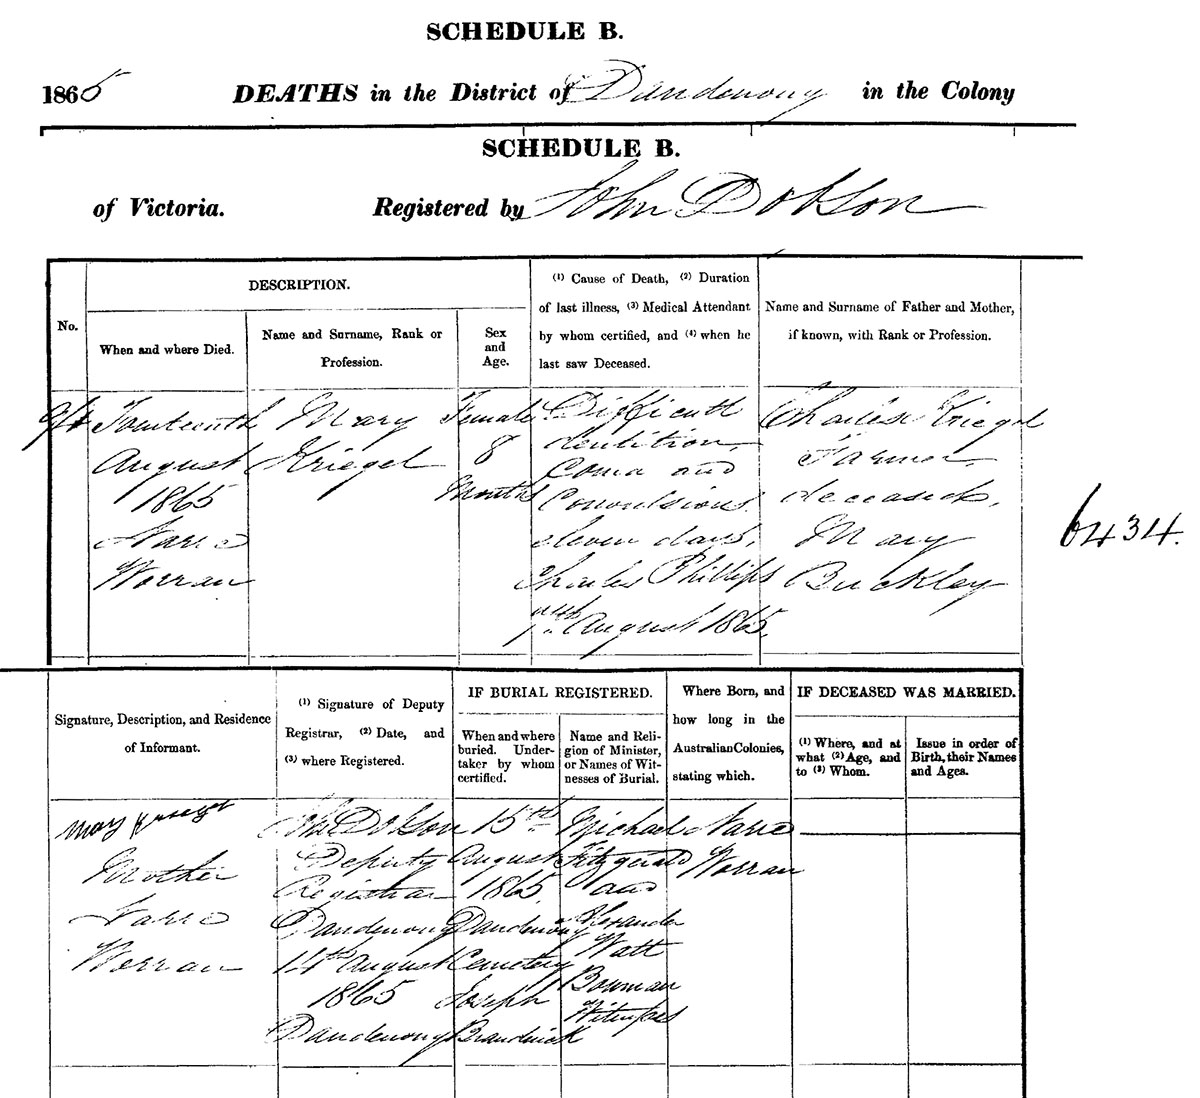 SCHEDULE B.
1865 DEATHS in the District of Dandenong in the Colony
SCHEDULE B.
of Victoria. Registered by John Dobson
No.
DESCRIPTION.
When and where Died.
Name and Surname, Rank or
Profession.
Sex
and
Age.
(1) Cause of Death, (2) Duration
of last illness, (3) Medical Attendant
by whom certified, and (4) when he
last saw Deceased.
Name and Surname of Father and Mother,
if known, with Rank or Profession.
Fourteenth
August
1865
Narre
Worran
Mary
Kriegel
Female
8
Months
Difficult
dentition,
Coma and
Convulsions.
eleven days,
Charles Phillips
August 1865.
Charles Kriegel
Farmer,
deceased,
Mary
Buckley
6434.
Signature, Description, and Residence
of Informant.
(1) Signature of Deputy
Registrar, (2) Date, and
(3) where Registered.
IF BURIAL REGISTERED.
When and where
buried. Under-
taker by whom
certified.
Name and Reli-
gion of Minister,
or Names of Wit-
nesses of Burial.
Where Born, and
how long in the
Australian Colonies,
stating which.
IF DECEASED WAS MARRIED.
(1) Where, and at
what (2) Age, and
to (3) Whom.
Issue in order of
Birth, their Names
and Ages.
Mary
Mother
Narre
Worran
John Dobson
Deputy
Registrar
Dandenong
14th August
1865
Dandenong
15th
August
1865.
Dandenong
Cemetery
Joseph
Michael
Fitzgerald
and
Alexander
Watt
Bowman
Witnesses
Narre
Worran